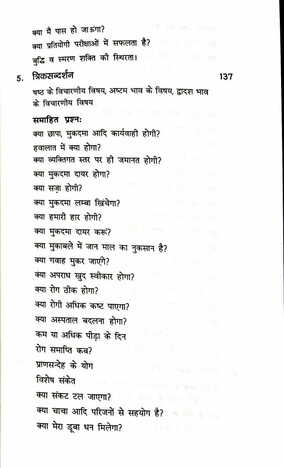 क्या मैं पास हो जाऊंगा?
क्या प्रतियोगी परीक्षाओं में सफलता है?
बुद्धि व स्मरण शक्ति की स्थिरता।
5. त्रिकसन्दर्शन 137
षष्ठ के विचारणीय विषय, अष्टम भाव के विषय, द्वादश भाव
के विचारणीय विषय
समाहित प्रश्नः
क्या छापा, मुकदमा आदि कार्यवाही होगी?
हवालात में क्या होगा?
क्या व्यक्तिगत स्तर पर ही जमानत होगी?
क्या मुकदमा दायर होगा?
क्या सज़ा होगी?
क्या मुकदमा लम्बा खिंचेगा?
क्या हमारी हार होगी?
क्या मुकदमा दायर करूं?
क्या मुकाबले में जान माल का नुकसान है?
क्या गवाह मुकर जाएंगे?
क्या अपराध खुद स्वीकार होगा?
क्या रोग ठीक होगा?
क्या रोगी अधिक कष्ट पाएगा?
क्या अस्पताल बदलना होगा?
कम या अधिक पीड़ा के दिन
रोग समाप्ति कब?
प्राणसन्देह के योग
विशेष संकेत
क्या संकट टल जाएगा?
क्या चाचा आदि परिजनों से सहयोग है?
क्या मेरा डूबा धन मिलेगा?